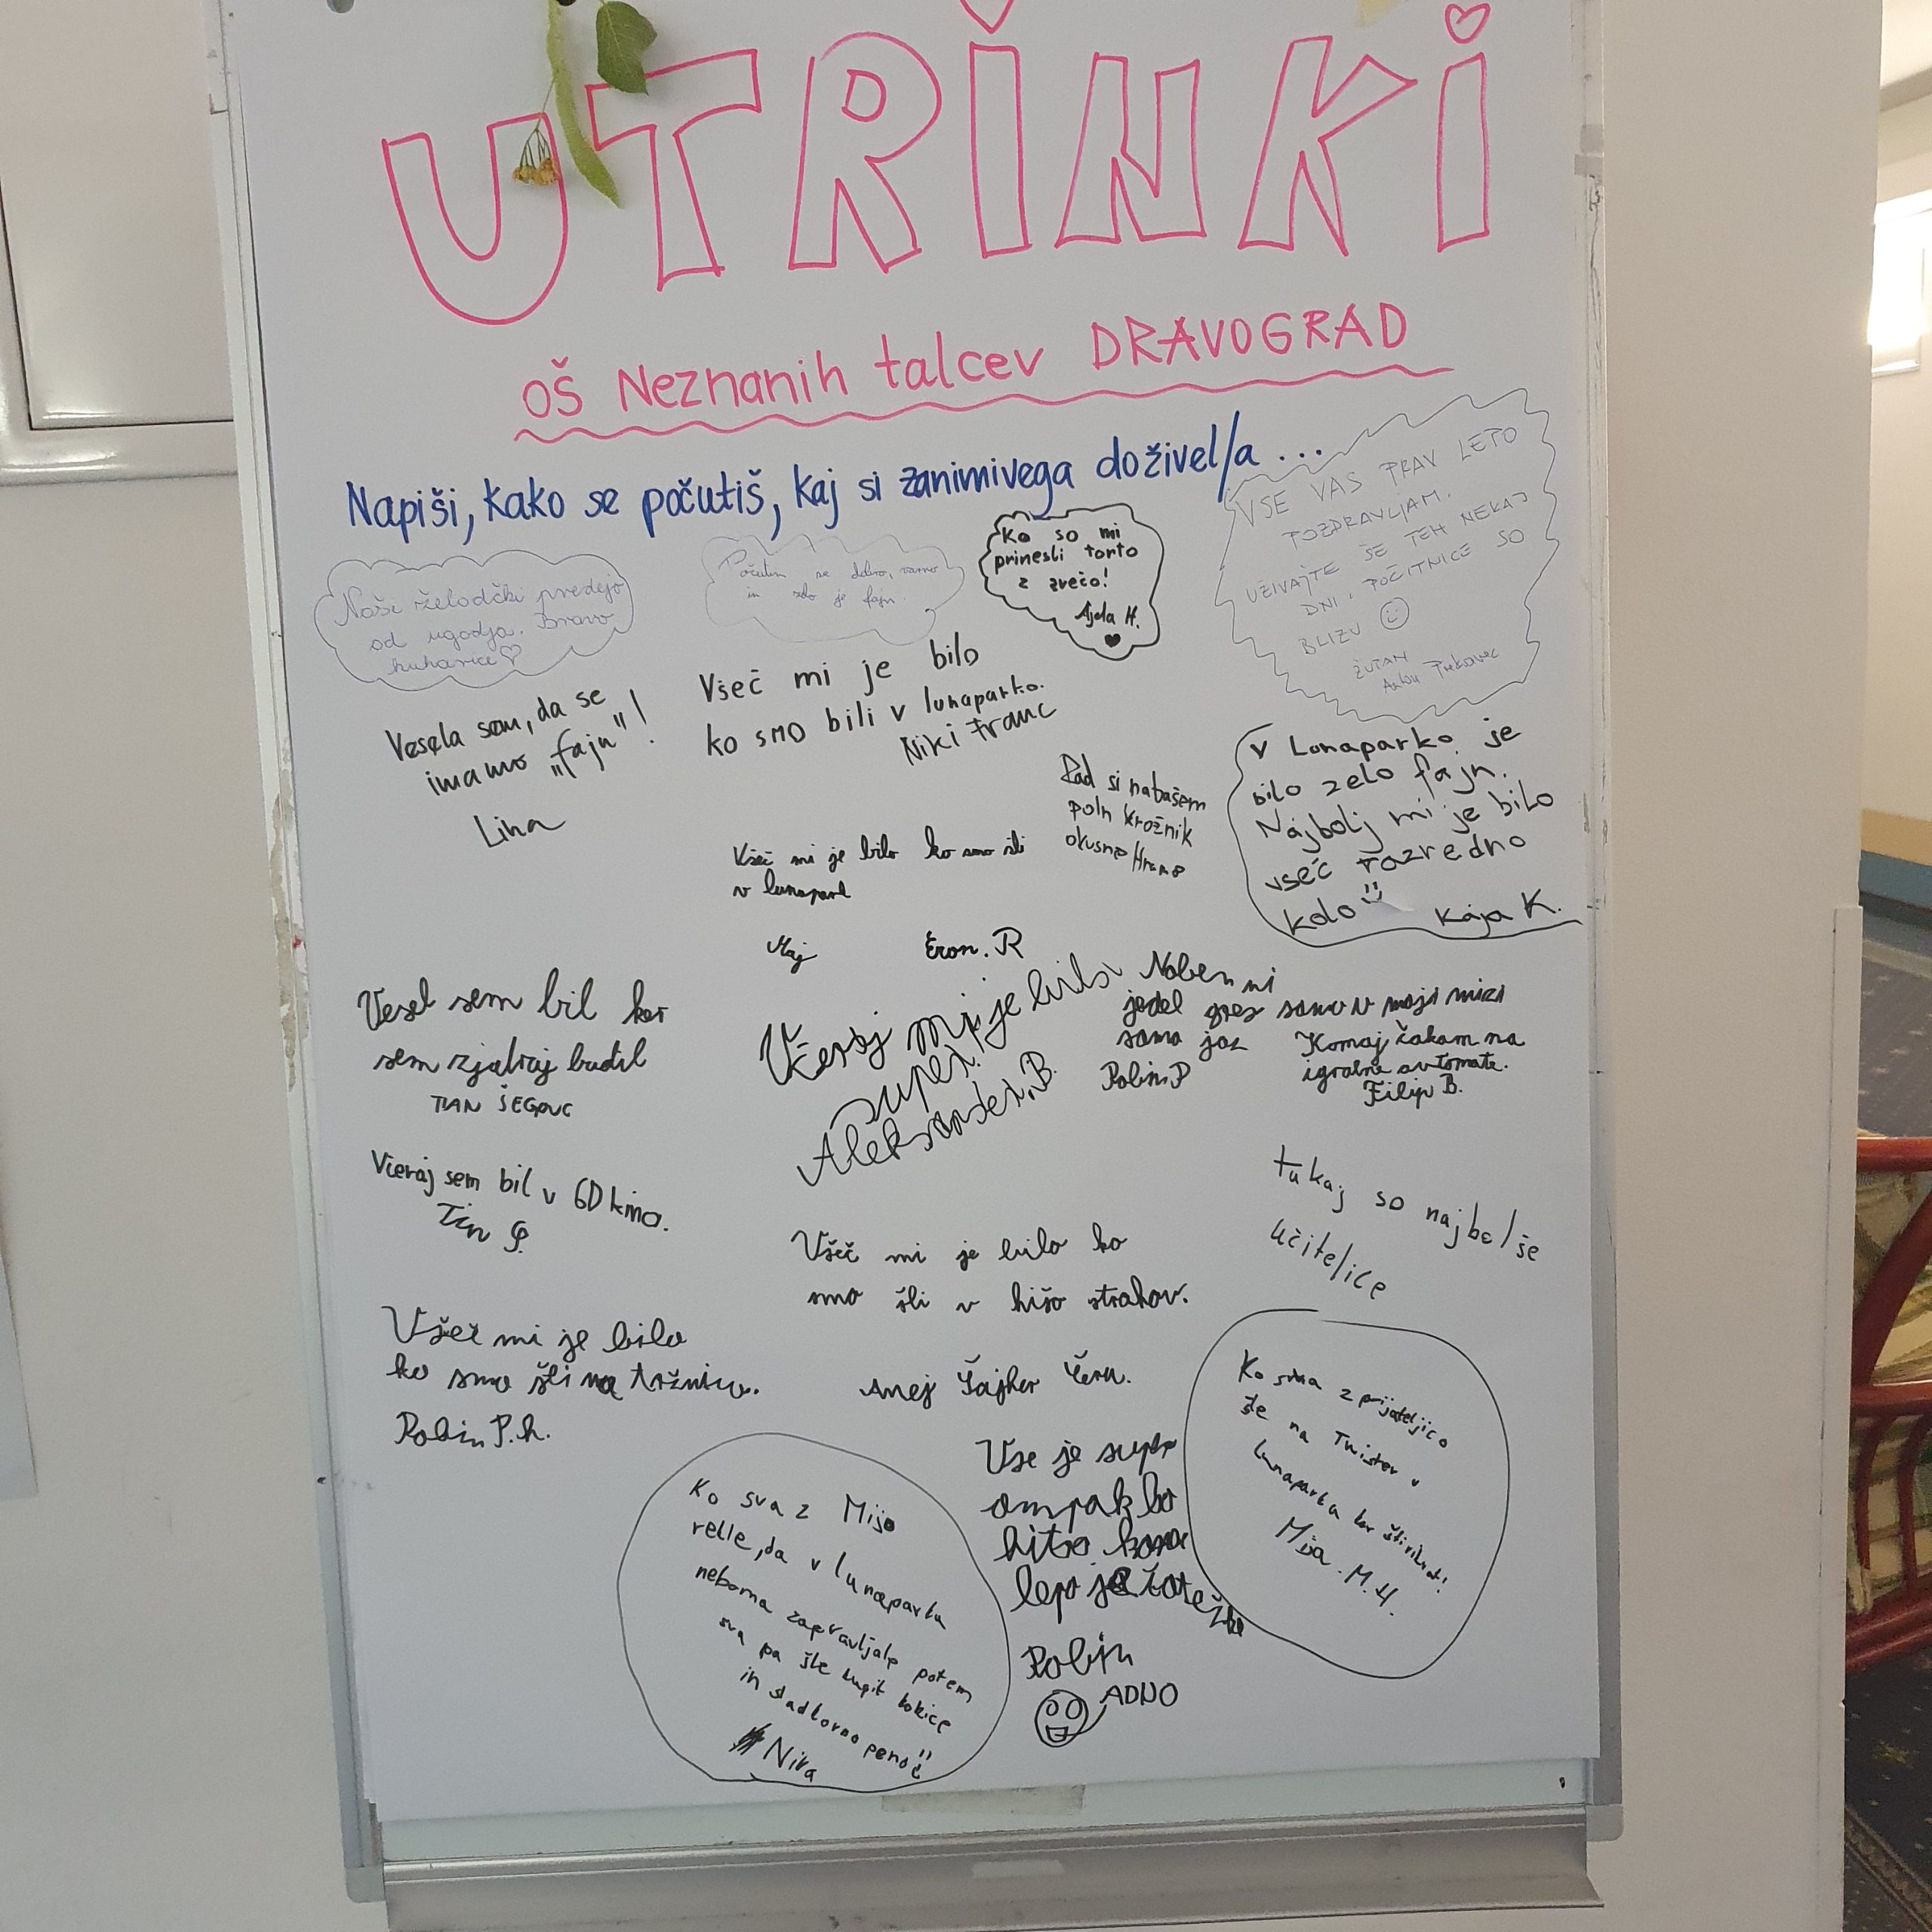 UTRINKI
OŠ Neznanih talcev DRAVOGRAD
Napiši, kako se počutiš, kaj si zanimivega doživel/a ...
Naši želodčki predejo
od ugodja. Bravo
kuharice ♡
Počutim se dobro, varno
in zelo je fajn.
Ko so mi
prinesli torto
z svečo!
Ajda H.
♥
VSE VAS PRAV LEPO
POZDRAVLJAM.
UŽIVAJTE ŠE TEH NEKAJ
DNI, POČITNICE SO
BLIZU ☺
ŽUPAN
Vesela sem, da se
imamo "fajn"!
Lina
Všeč mi je bilo
ko smo bili v lunaparko.
Niki Franc
Rad si nabašem
poln krožnik
okusne Hrane
V Lunaparko je
bilo zelo fajn.
Najbolj mi je bilo
všeč razredno
kolo
Kaja K.
Všeč mi je bilo ko smo šli
v lunapark
Maj
Eron. R
Vesel sem bil ker
sem zjutraj budil
TIAN ŠEGOVC
Včeraj mi je bilo
super.
Aleksander.B.
Noben ni
jedel grez samo v moji mizi
samo jaz
Robin.P
Komaj čakam na
igralne avtomate.
Filip B.
Včeraj sem bil v 6D kino.
Tin
tukaj so najbolše
učiteljice
Všeč mi je bilo ko
smo šli v hišo strahov.
Anej
Všeč mi je bilo
ko smo šli na tržnico.
Robin P.h.
Ko sma z prijateljico
šle na Twister v
lunaparku kar štirikrat!
Mia. M.H.
Vse je super
ampak bo
hitro konac
lepo je
Robin
ADNO
Ko sva z Mijo
relle, da v lunaparku
neboma zapravljale potem
sva pa šle kupit kokice
in sladkorno peno
Nika